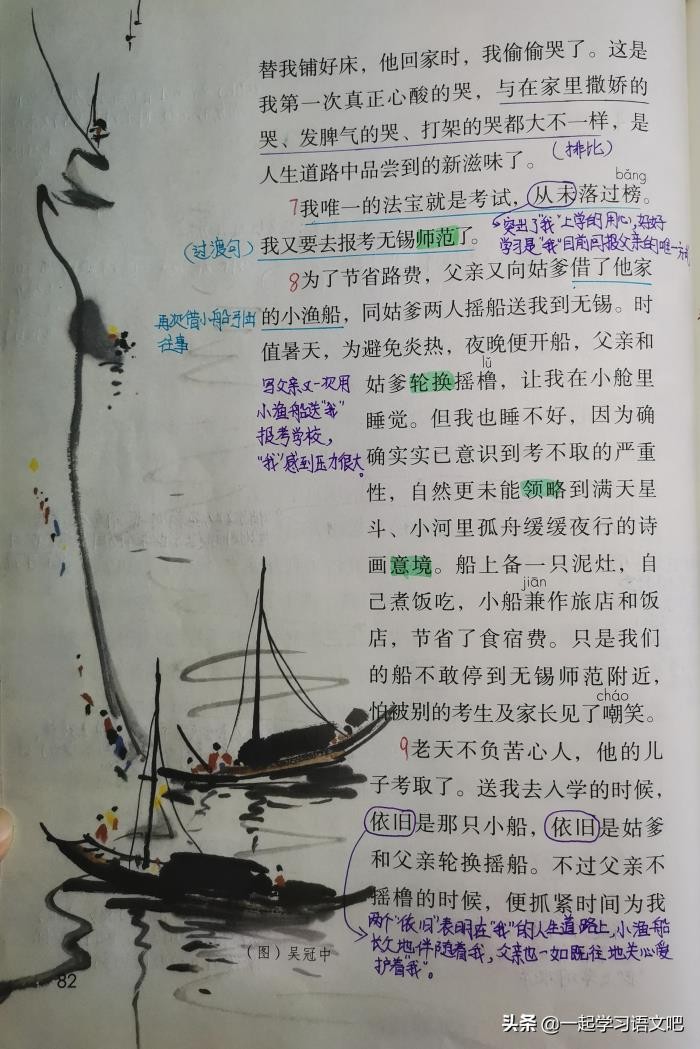 替我铺好床，他回家时，我偷偷哭了。这是
我第一次真正心酸的哭，与在家里撒娇的
哭、发脾气的哭、打架的哭都大不一样，是
人生道路中品尝到的新滋味了。
（排比）
bǎng
7我唯一的法宝就是考试，从未落过榜。
突出了“我”上学的用心，好好
学习是“我”目前回报父亲的唯一方式
（过渡句）
我又要去报考无锡师范了。
8为了节省路费，父亲又向姑爹借了他家
再次借小船引出
往事
的小渔船，同姑爹两人摇船送我到无锡。时
值暑天，为避免炎热，夜晚便开船，父亲和
lǔ
姑爹轮换摇橹，让我在小舱里
写父亲又一次用
小渔船送“我”
报考学校，
“我”感到压力很大。
睡觉。但我也睡不好，因为确
确实实已意识到考不取的严重
性，自然更未能领略到满天星
斗、小河里孤舟缓缓夜行的诗
画意境。船上备一只泥灶，自
jiān
己煮饭吃，小船兼作旅店和饭
店，节省了食宿费。只是我们
的船不敢停到无锡师范附近，
cháo
怕被别的考生及家长见了嘲笑。
9老天不负苦心人，他的儿
子考取了。送我去入学的时候，
依旧是那只小船，依旧是姑爹
和父亲轮换摇船。不过父亲不
摇橹的时候，便抓紧时间为我
两个“依旧”表明在“我”的人生道路上，小渔船
长久地伴随着我，父亲也一如既往地关心爱
护着“我”。
（图）吴冠中
82
头条 @一起学习语文吧